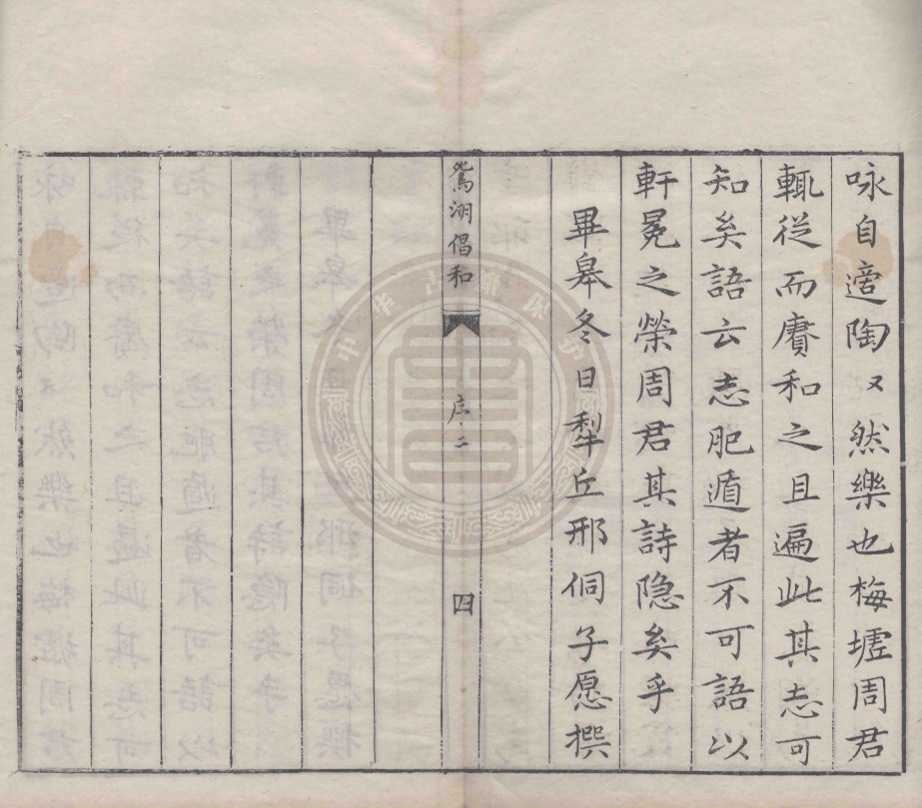 咏自適陶〻然樂也梅墟周君
輒從而賡和之且遍此其志可
知矣語云志肥遁者不可語以
軒冕之榮周君其詩隐矣乎
畢皋冬日犁丘邢侗子愿撰
鴛湖倡和
序二
四